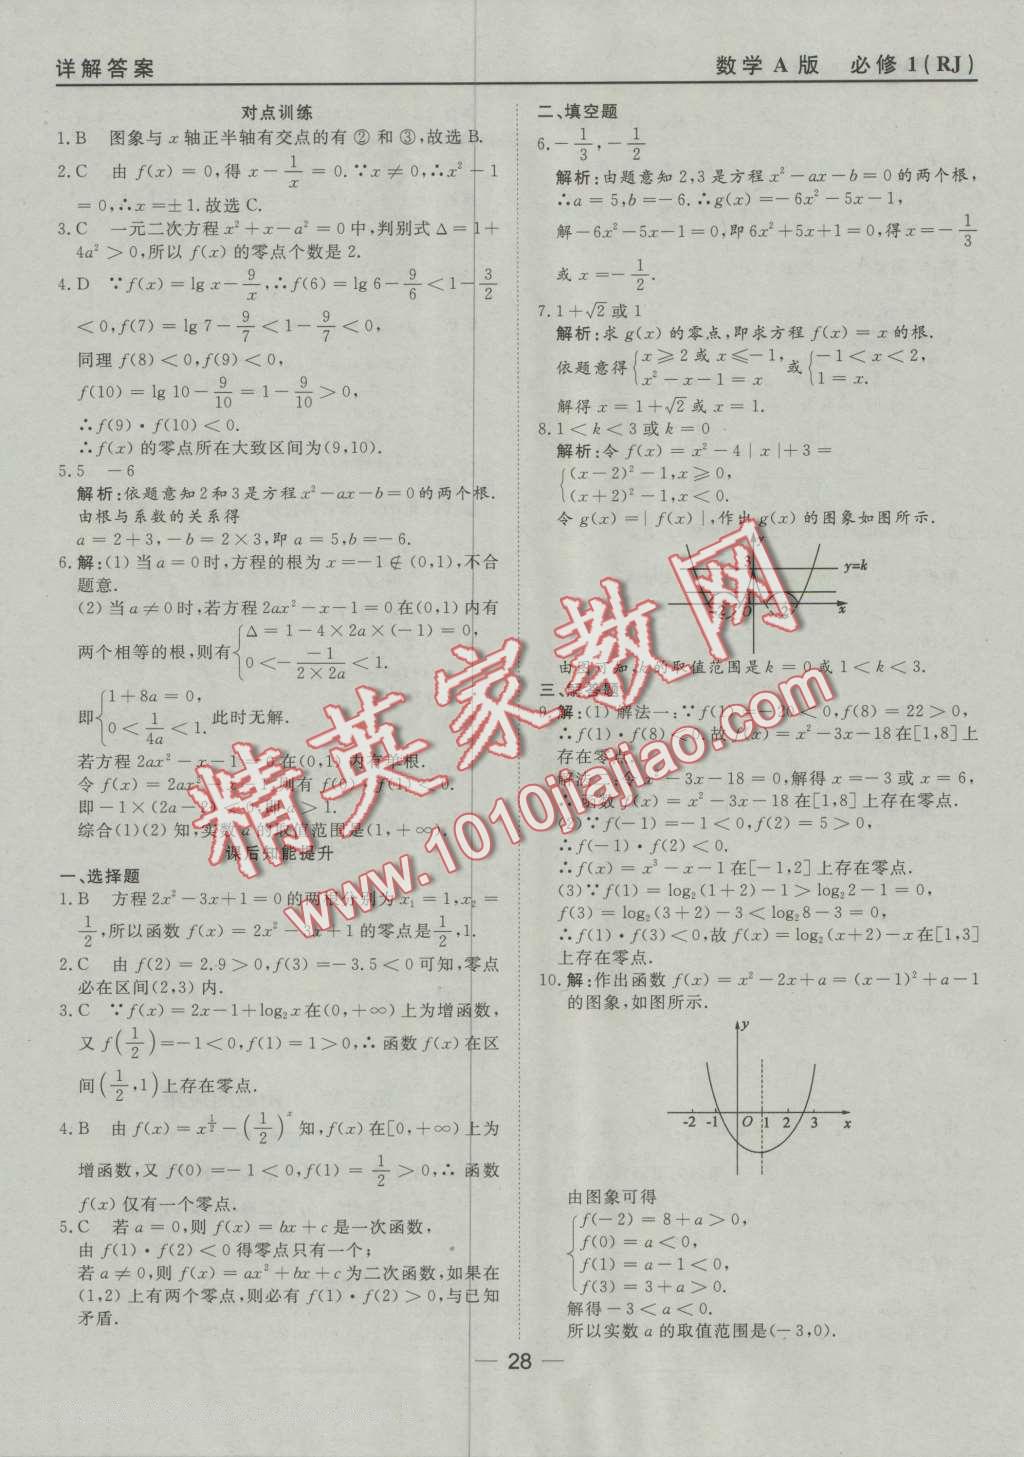 详解答案
数学A版 必修1(RJ)
对点训练
1.B 图象与x轴正半轴有交点的有②和③,故选B.
2.C 由f(x)=0,得x-1/x=0.∵x≠0,∴x²-1
=0,∴x=±1.故选C.
3.C 一元二次方程x²+x-a²=0中,判别式Δ=1+
4a²>0,所以f(x)的零点个数是2.
4.D ∵f(x)=lg x-9/x,∴f(6)=lg 6-9/6<1-3/2
<0,f(7)=lg 7-9/7<1-9/7<0,
同理f(8)<0,f(9)<0,
f(10)=lg 10-9/10=1-9/10>0,
∴f(9)·f(10)<0.
∴f(x)的零点所在大致区间为(9,10).
5.5 -6
解析:依题意知2和3是方程x²-ax-b=0的两个根.
由根与系数的关系得
a=2+3,-b=2×3,即a=5,b=-6.
6.解:(1)当a=0时,方程的根为x=-1∉(0,1),不合
题意.
(2)当a≠0时,若方程2ax²-x-1=0在(0,1)内有
两个相等的根,则有{Δ=1-4×2a×(-1)=0,
0<-(-1)/(2×2a)<1.
即{1+8a=0,
0<1/4a<1. 此时无解.
若方程2ax²-x-1=0在(0,1)内有单根.
令f(x)=2ax²-x-1,则有f(0)·f(1)<0.
即-1×(2a-2)<0,即a>1.
综合(1)(2)知,实数a的取值范围是(1,+∞).
课后知能提升
一、选择题
1.B 方程2x²-3x+1=0的两根分别为x₁=1,x₂=
1/2,所以函数f(x)=2x²-3x+1的零点是1/2,1.
2.C 由f(2)=2.9>0,f(3)=-3.5<0可知,零点
必在区间(2,3)内.
3.C ∵f(x)=2x-1+log₂x在(0,+∞)上为增函数,
又f(1/2)=-1<0,f(1)=1>0,∴函数f(x)在区
间(1/2,1)上存在零点.
4.B 由f(x)=x^(1/2)-(1/2)^x知,f(x)在[0,+∞)上为
增函数,又f(0)=-1<0,f(1)=1/2>0,∴函数
f(x)仅有一个零点.
5.C 若a=0,则f(x)=bx+c是一次函数,
由f(1)·f(2)<0得零点只有一个;
若a≠0,则f(x)=ax²+bx+c为二次函数,如果在
(1,2)上有两个零点,则必有f(1)·f(2)>0,与已知
矛盾.
二、填空题
6.-1/3,-1/2
解析:由题意知2,3是方程x²-ax-b=0的两个根,
∴a=5,b=-6.∴g(x)=-6x²-5x-1,
解-6x²-5x-1=0,即6x²+5x+1=0,得x=-1/3
或x=-1/2.
7.1+√2或1
解析:求g(x)的零点,即求方程f(x)=x的根.
依题意得{x≥2或x≤-1,
x²-x-1=x 或{-1<x<2,
1=x.
解得x=1+√2或x=1.
8.1<k<3或k=0
解析:令f(x)=x²-4|x|+3=
{(x-2)²-1,x≥0,
(x+2)²-1,x<0.
令g(x)=|f(x)|,作出g(x)的图象如图所示.
y
3
y=k
-2 O 2 x
由图可知,k的取值范围是k=0或1<k<3.
三、解答题
9.解:(1)解法一:∵f(1)=-20<0,f(8)=22>0,
∴f(1)·f(8)<0.故f(x)=x²-3x-18在[1,8]上
存在零点.
解法二:令x²-3x-18=0,解得x=-3或x=6,
∴函数f(x)=x²-3x-18在[1,8]上存在零点.
(2)∵f(-1)=-1<0,f(2)=5>0,
∴f(-1)·f(2)<0.
∴f(x)=x³-x-1在[-1,2]上存在零点.
(3)∵f(1)=log₂(1+2)-1>log₂2-1=0,
f(3)=log₂(3+2)-3<log₂8-3=0,
∴f(1)·f(3)<0,故f(x)=log₂(x+2)-x在[1,3]
上存在零点.
10.解:作出函数f(x)=x²-2x+a=(x-1)²+a-1
的图象,如图所示.
y
-2 -1 O 1 2 3 x
由图象可得
{f(-2)=8+a>0,
f(0)=a<0,
f(1)=a-1<0,
f(3)=3+a>0.
解得-3<a<0.
所以实数a的取值范围是(-3,0).
28
精英家教网
www.1010jiajiao.com